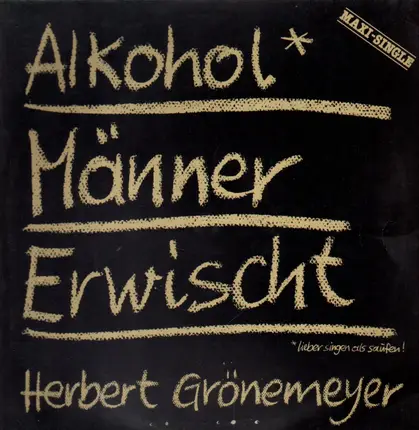 Alkohol*
MAXI-SINGLE
Männer
Erwischt
*lieber singen als saufen!
Herbert Grönemeyer